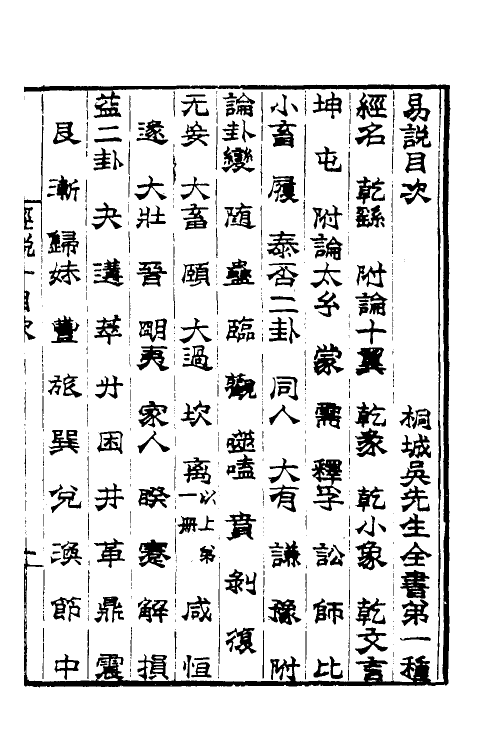 易說目次 桐城吳先生全書第一種
經名 乾繇 附論十翼 乾彖 乾小象 乾文言
坤 屯 附論太玄 蒙 需 釋孚 訟 師 比
小畜 履 泰否二卦 同人 大有 謙 豫 附
論卦變 隨 蠱 臨 觀 噬嗑 賁 剝 復
无妄 大畜 頤 大過 坎 離 以上第一册 咸 恒
遯 大壯 晉 明夷 家人 睽 蹇 解 損
益二卦 夬 遘 萃 升 困 井 革 鼎 震
艮 漸 歸妹 豐 旅 巽 兌 渙 節 中
經說一目次